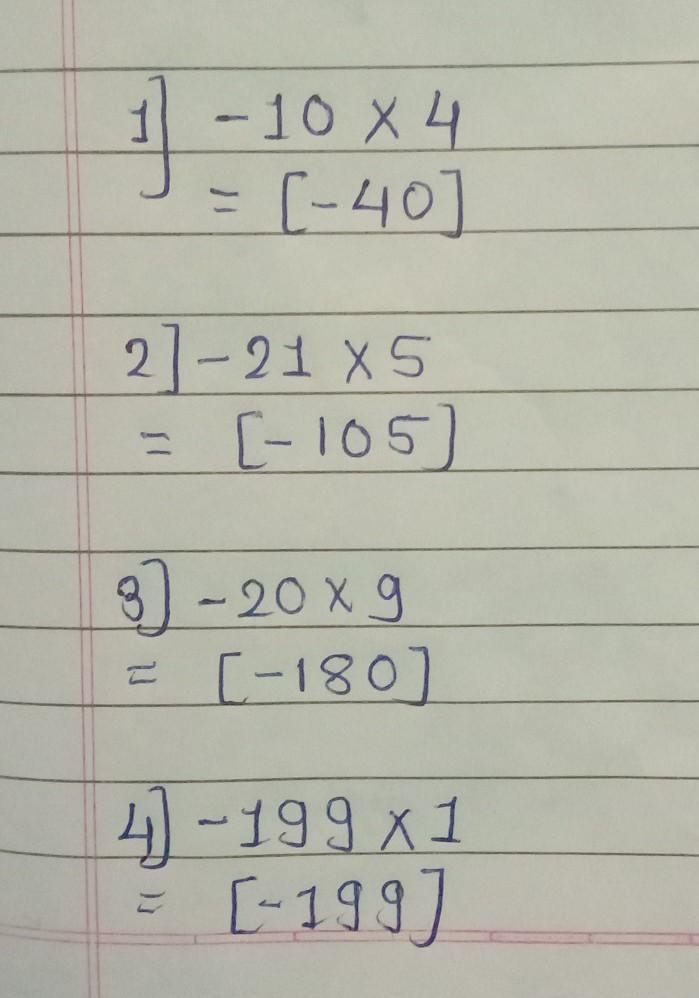 1] -10 × 4
= [-40]
2] -21 × 5
= [-105]
3] -20 × 9
= [-180]
4] -199 × 1
= [-199]